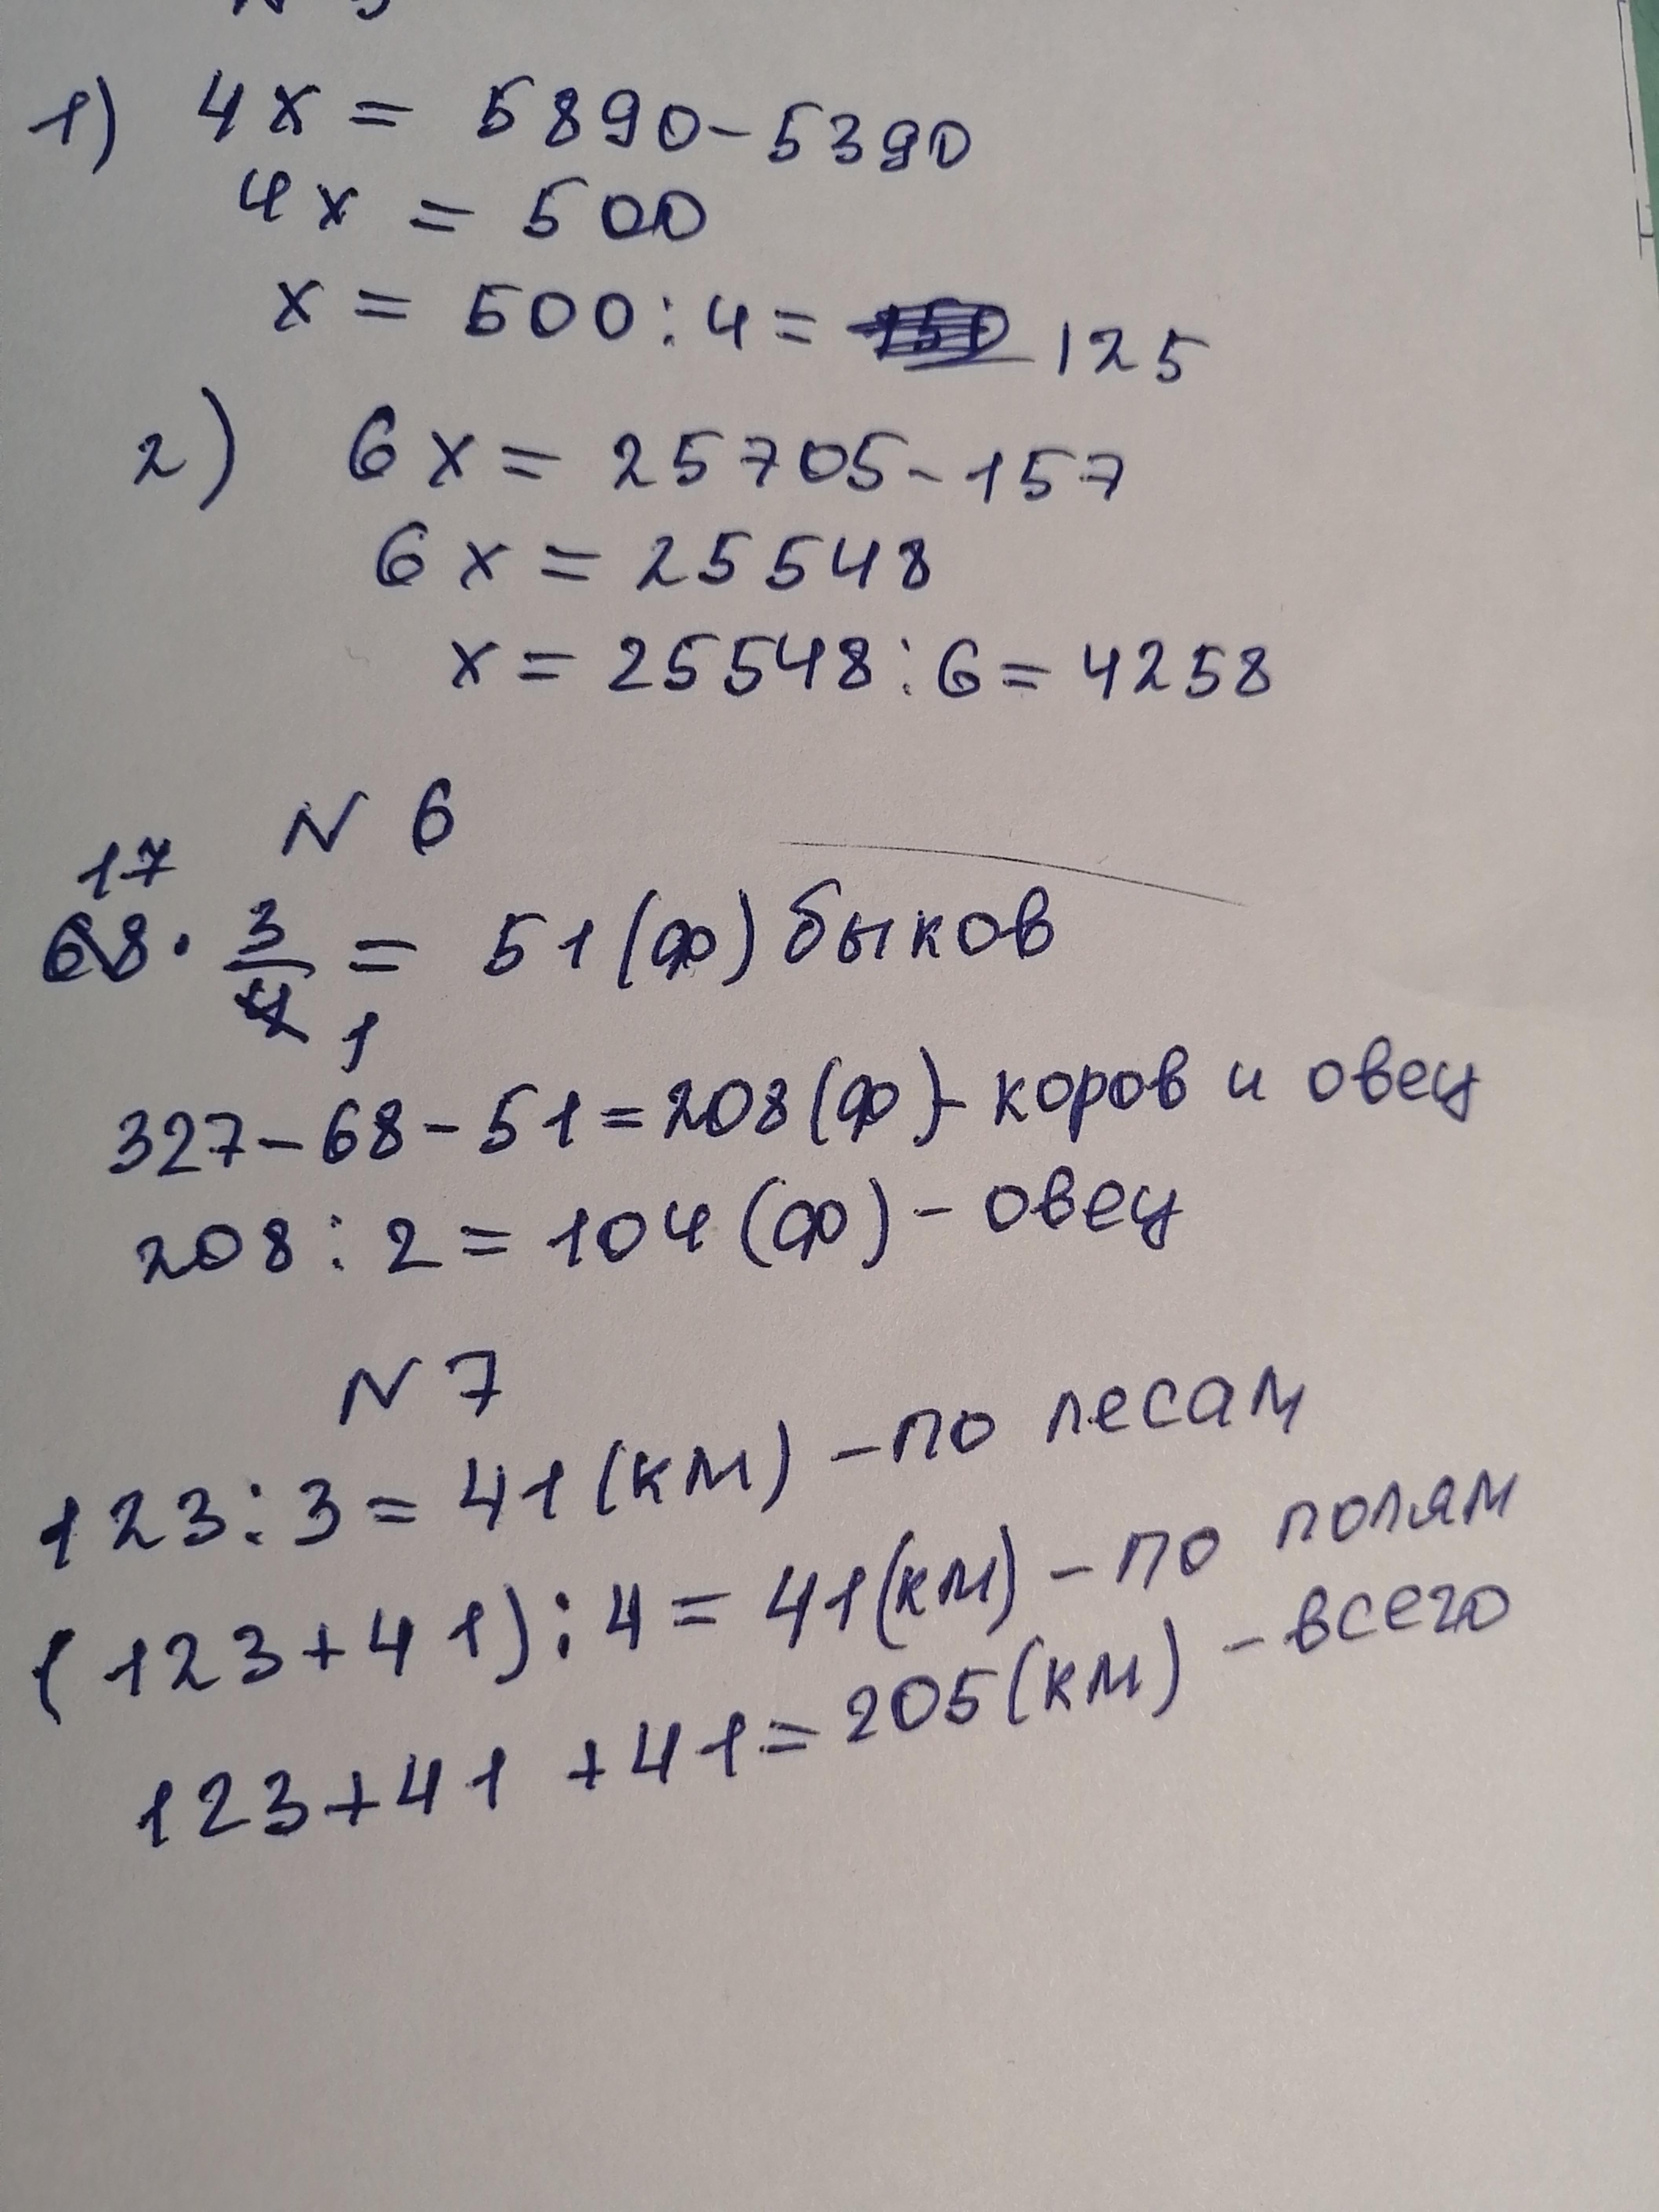 1) 4x = 5890-5390
4x = 500
x = 500:4= 125
2) 6x = 25705-157
6x = 25548
x = 25548:6= 4258
N 6
17
68 · 3/4 = 51(ф) быков
1
327-68-51=208(ф)- коров и овец
208:2=104(ф)- овец
N 7
123:3=41(км) -по лесам
(123+41):4=41(км)-по полям
123+41+41=205(км)-всего